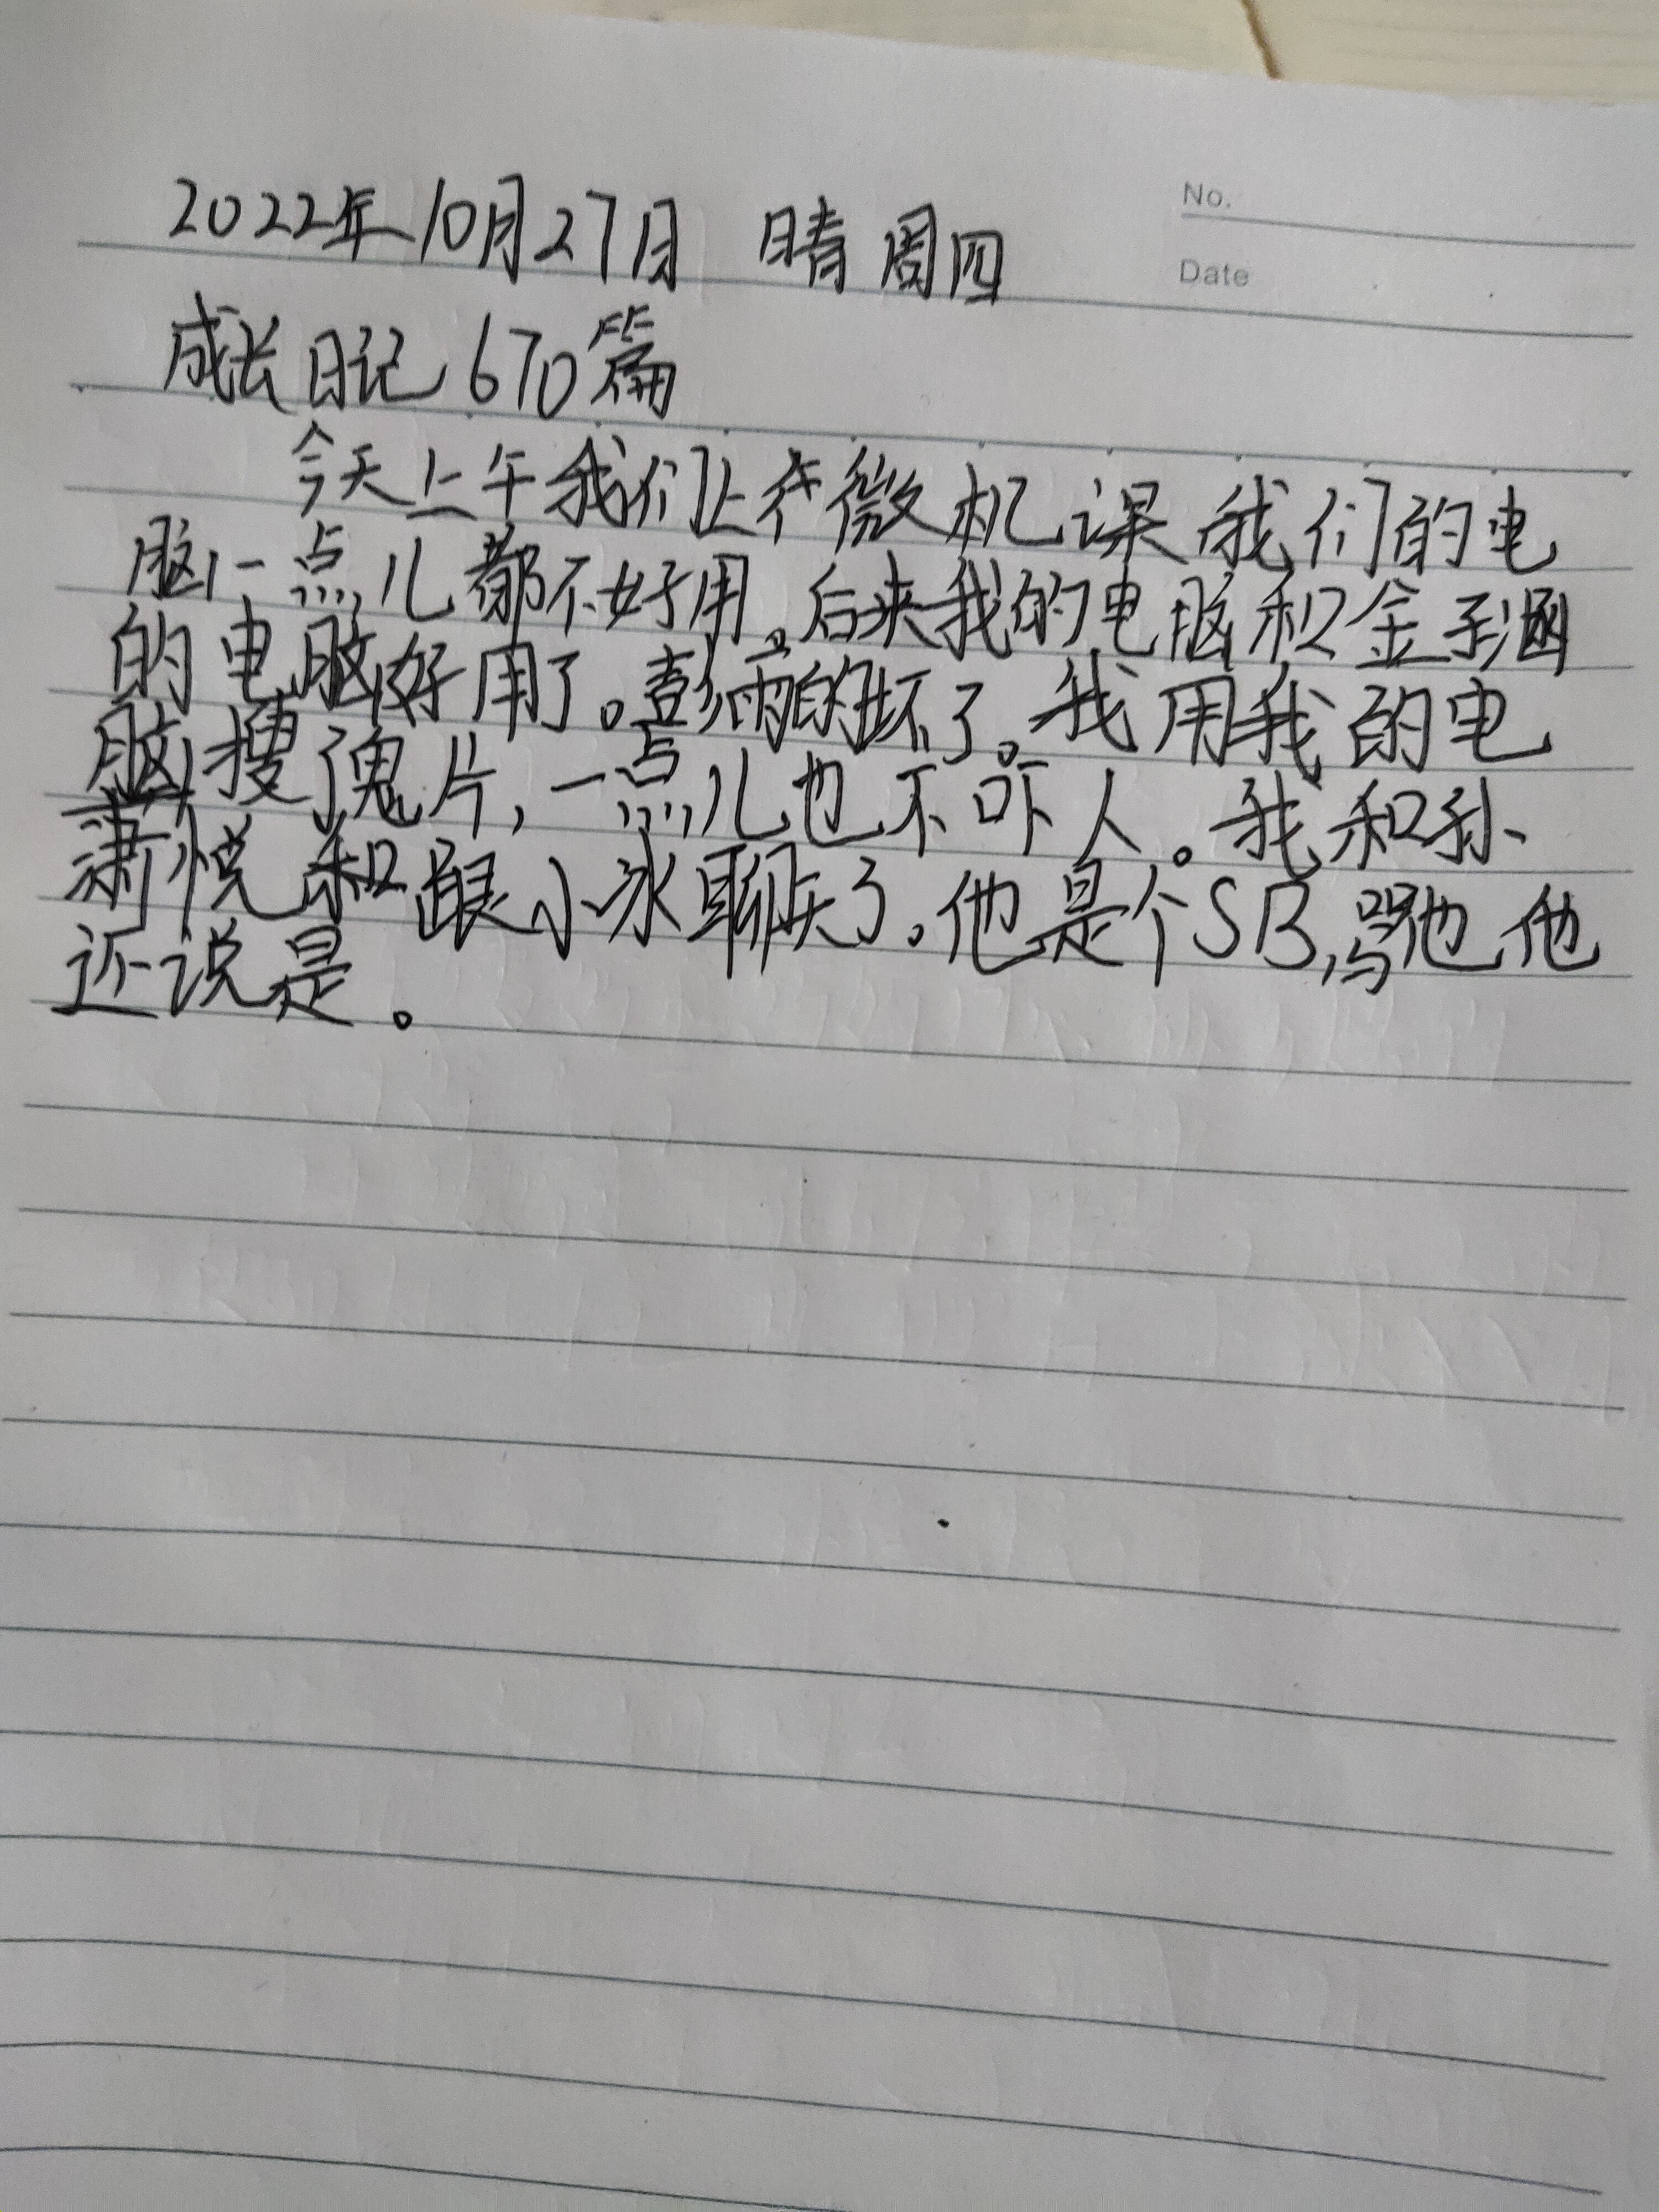 No.
Date
2022年10月27日 晴 周四
成长日记670篇
今天上午我们上微机课我们的电
脑一点儿都不好用。后来我的电脑和金子涵
的电脑好用了。彭雨的坏了。我用我的电
脑搜了鬼片,一点儿也不吓人。我和孙
萧悦和跟小冰聊天了。他是个SB,骂他他
还说是。